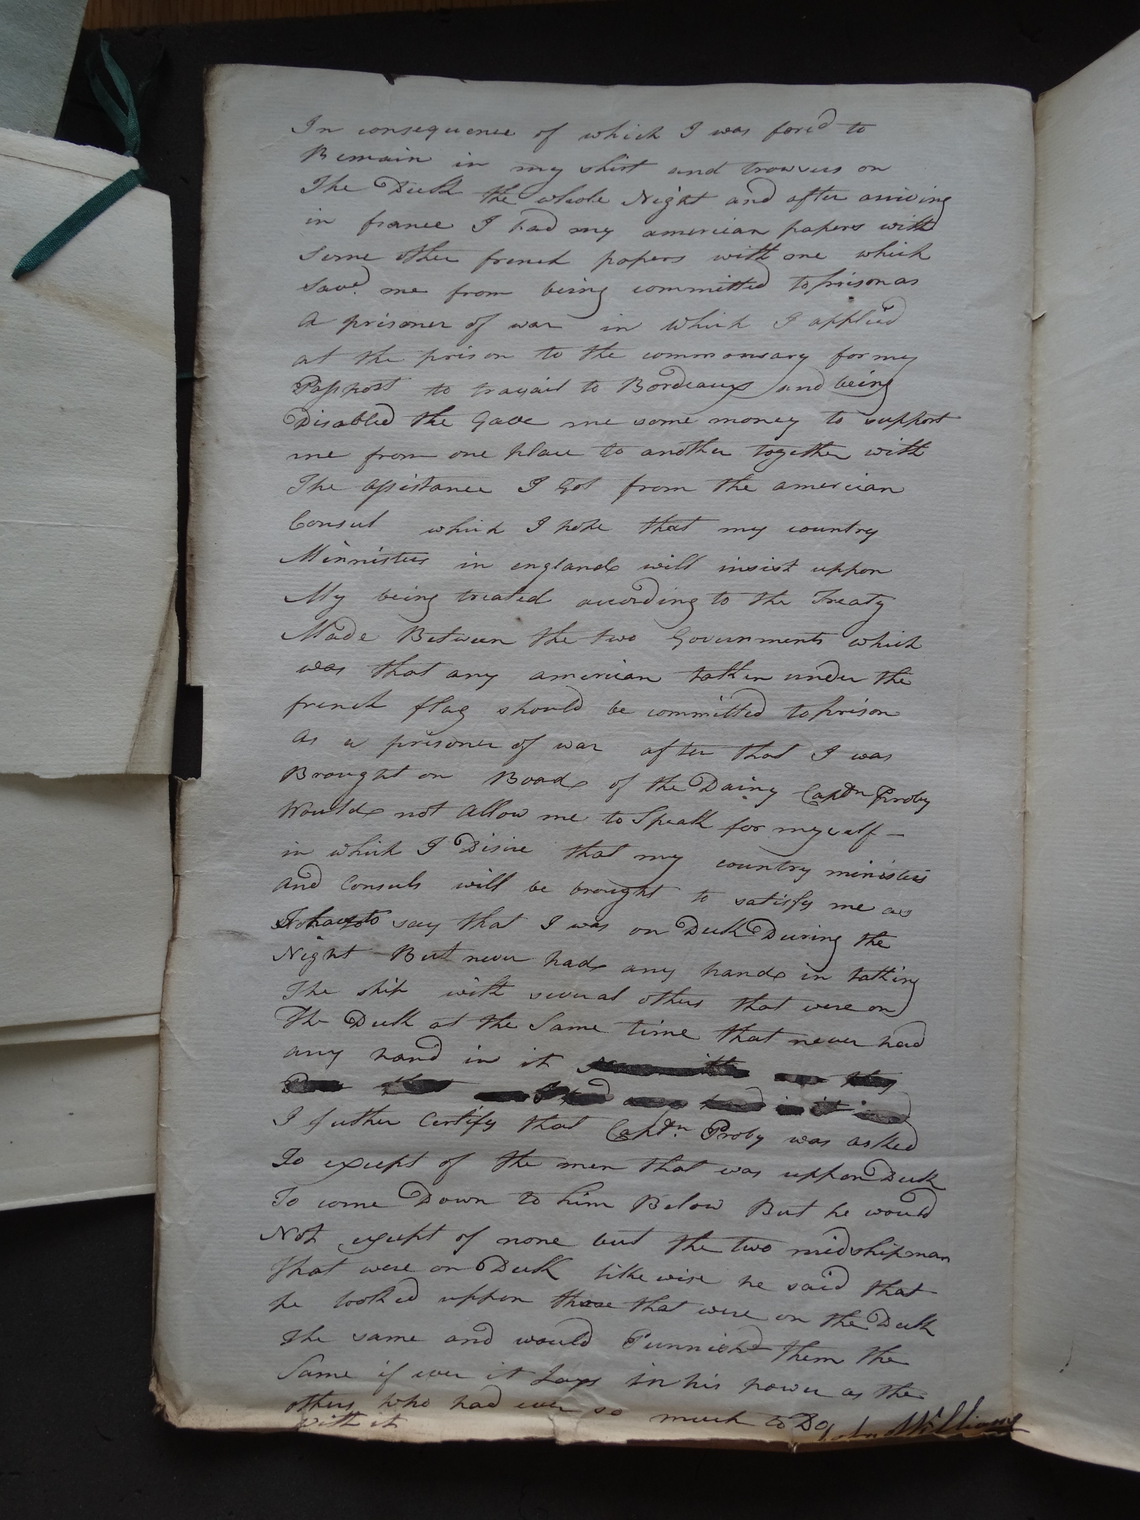 In consequence of which I was forc'd to
Remain in my shirt and trowsers on
The Deck the whole Night and after arriving
in france I had my american papers with
some other french papers with me which
Sav'd me from being committed to prison as
a prisoner of war in which I applied
at the prison to the for my
Passport to travail to Bordeaux and being
Disabled the Gave me some money to support
me from one place to another together with
The assistance I Got from the american
Consul which I hope that my country
Minnisters in england will insist uppon
My being treated according to the Treaty
Made Between the two Governments which
was that any american takken under the
french flag should be committed to prison
as a prisoner of war after that I was
Brought on Board of the Capt'n Proby
Would not allow me to Speak for myself —
in which I Disire that my country ministers
and Consuls will be brought to satisfy me as
say that I was on Deck During the
Night But never had any hand in takking
The ship with several others that were on
The Deck at the Same time that never had
any hand in it
I futher Certify that Capt'n Proby was asked
To except of the men that was uppon Deck
To come Down to him Below But he would
Not except of none but the two midshipman
that were on Deck likkewise he said that
he look'd uppon those that were on the Deck
the same and would Punnish them the
Same if ever it Lays in his power as the
others who had ever so much to Do
with it John Williams